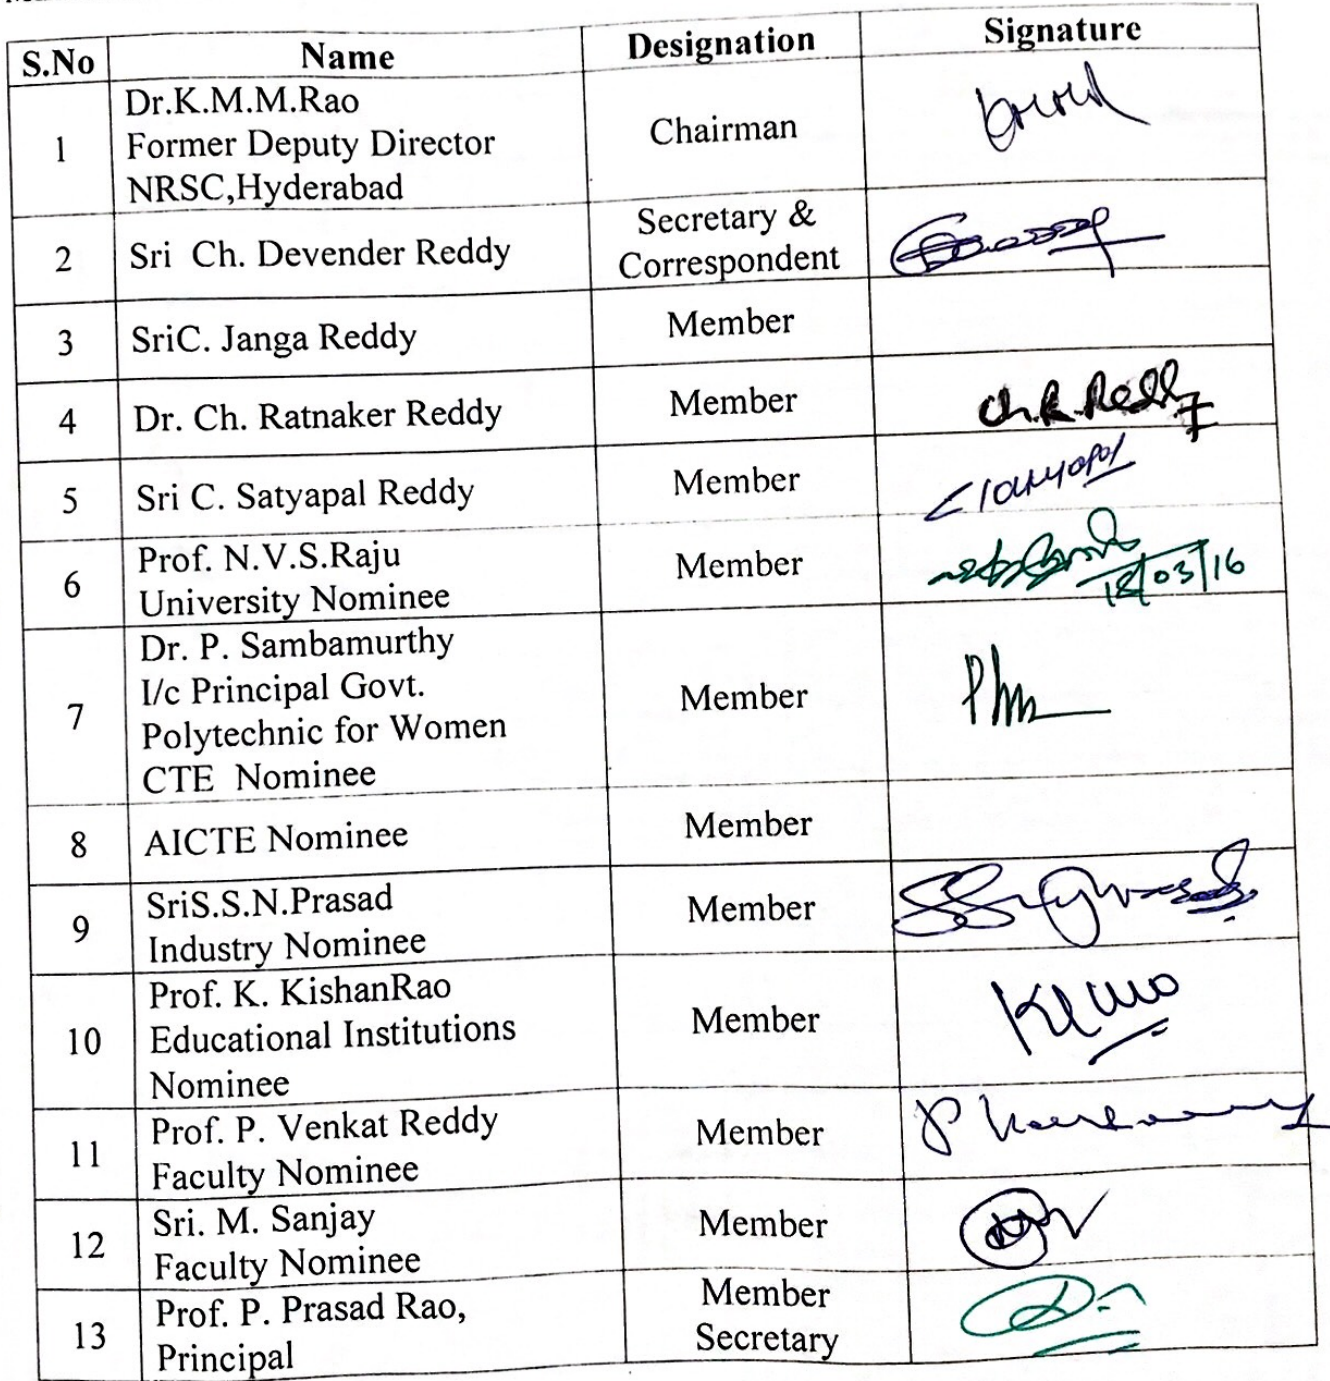 S.No Name Designation Signature
1 Dr.K.M.M.Rao
Former Deputy Director
NRSC,Hyderabad
Chairman
2 Sri Ch. Devender Reddy
Secretary &
Correspondent
3 SriC. Janga Reddy Member
4 Dr. Ch. Ratnaker Reddy Member Ch.R.Reddy
5 Sri C. Satyapal Reddy Member
6 Prof. N.V.S.Raju
University Nominee
Member
18/03/16
7 Dr. P. Sambamurthy
I/c Principal Govt.
Polytechnic for Women
CTE Nominee
Member
8 AICTE Nominee Member
9 SriS.S.N.Prasad
Industry Nominee
Member
10 Prof. K. KishanRao
Educational Institutions
Nominee
Member
11 Prof. P. Venkat Reddy
Faculty Nominee
Member
12 Sri. M. Sanjay
Faculty Nominee
Member
13 Prof. P. Prasad Rao,
Principal
Member
Secretary